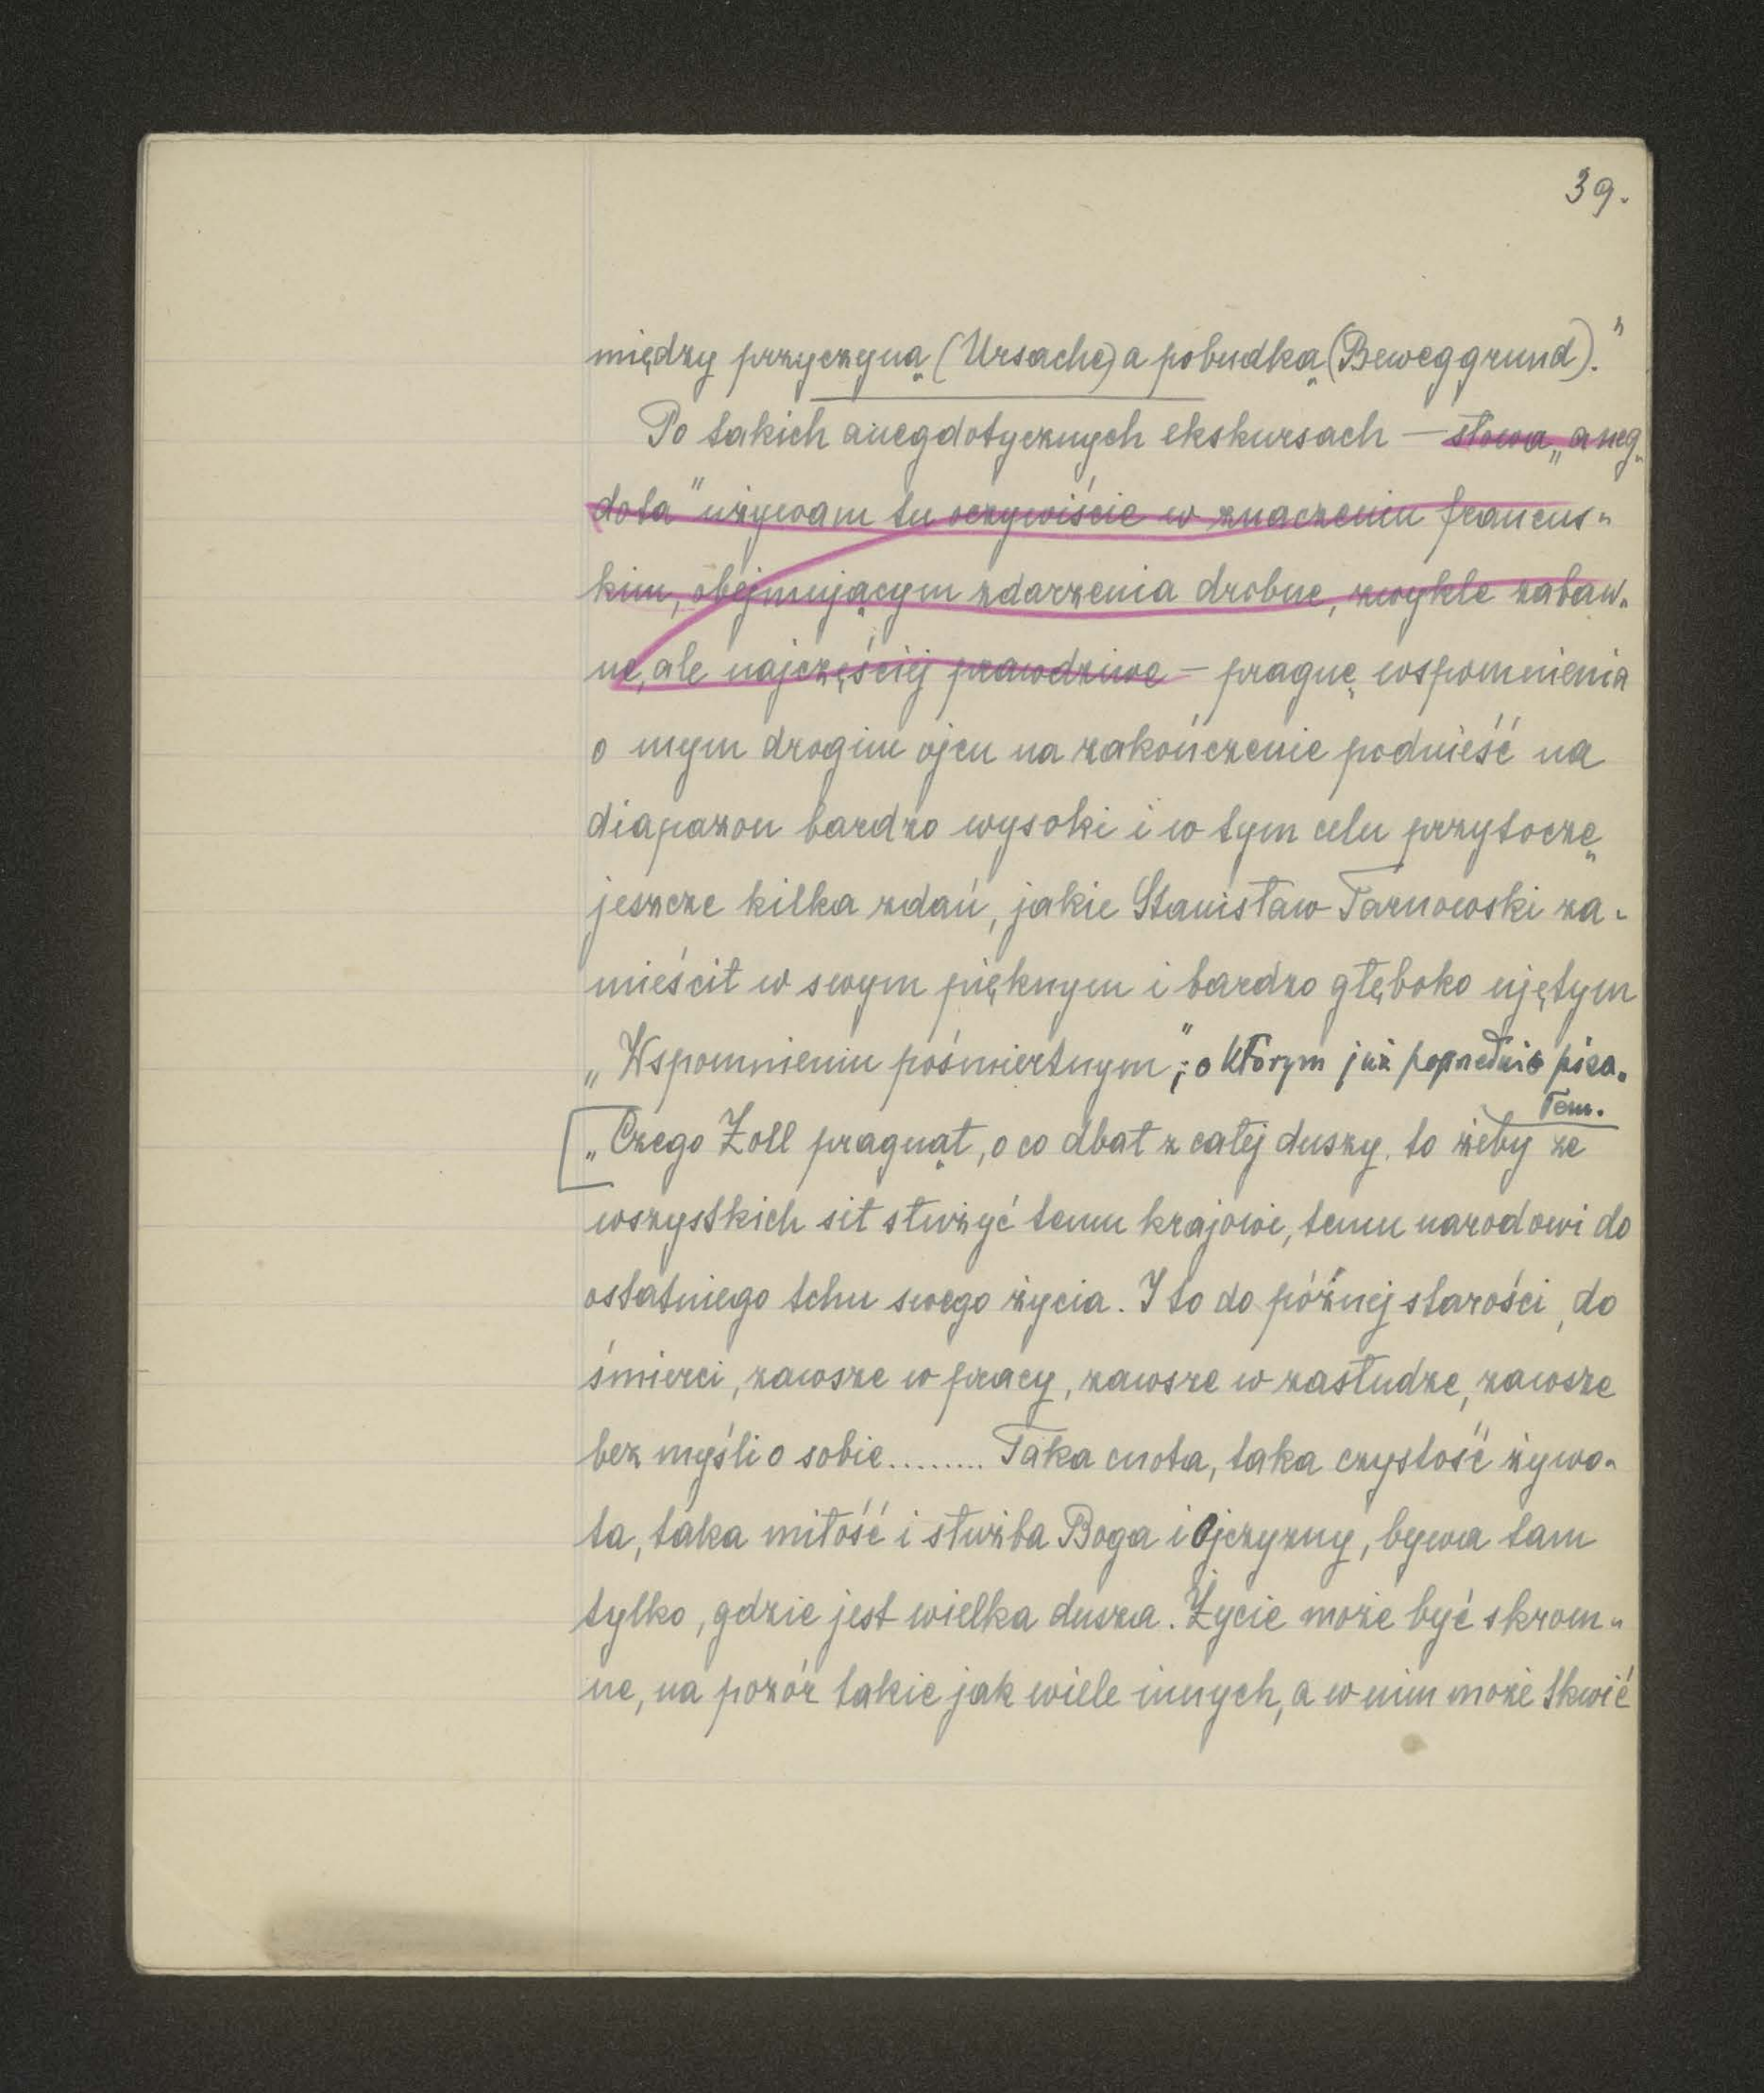 39.
między przyczyną (Ursache) a pobudką (Beweggrund)."
Po takich anegdotycznych ekskursach — słowa „aneg-
dota" używam tu oczywiście w znaczeniu francus-
kim, obejmującym zdarzenia drobne, zwykle zabaw-
ne, ale najczęściej prawdziwe — pragnę wspomnienia
o mym drogim ojcu na zakończenie podnieść na
diapazon bardzo wysoki i w tym celu przytoczę
jeszcze kilka zdań, jakie Stanisław Tarnowski za-
mieścił w swym pięknym i bardzo głęboko ujętym
„Wspomnieniu pośmiertnym", o którym już poprzednio pisa-
łem.
„Czego Zoll pragnął, o co dbał z całej duszy, to żeby ze
wszystkich sił służyć temu krajowi, temu narodowi do
ostatniego tchu swego życia. I to do późnej starości, do
śmierci, zawsze w pracy, zawsze w zasłudze, zawsze
bez myśli o sobie......... Taka cnota, taka czystość żywo-
ta, taka miłość i służba Boga i Ojczyzny, bywa tam
tylko, gdzie jest wielka dusza. Życie może być skrom-
ne, na pozór takie jak wiele innych, a w nim może tkwić